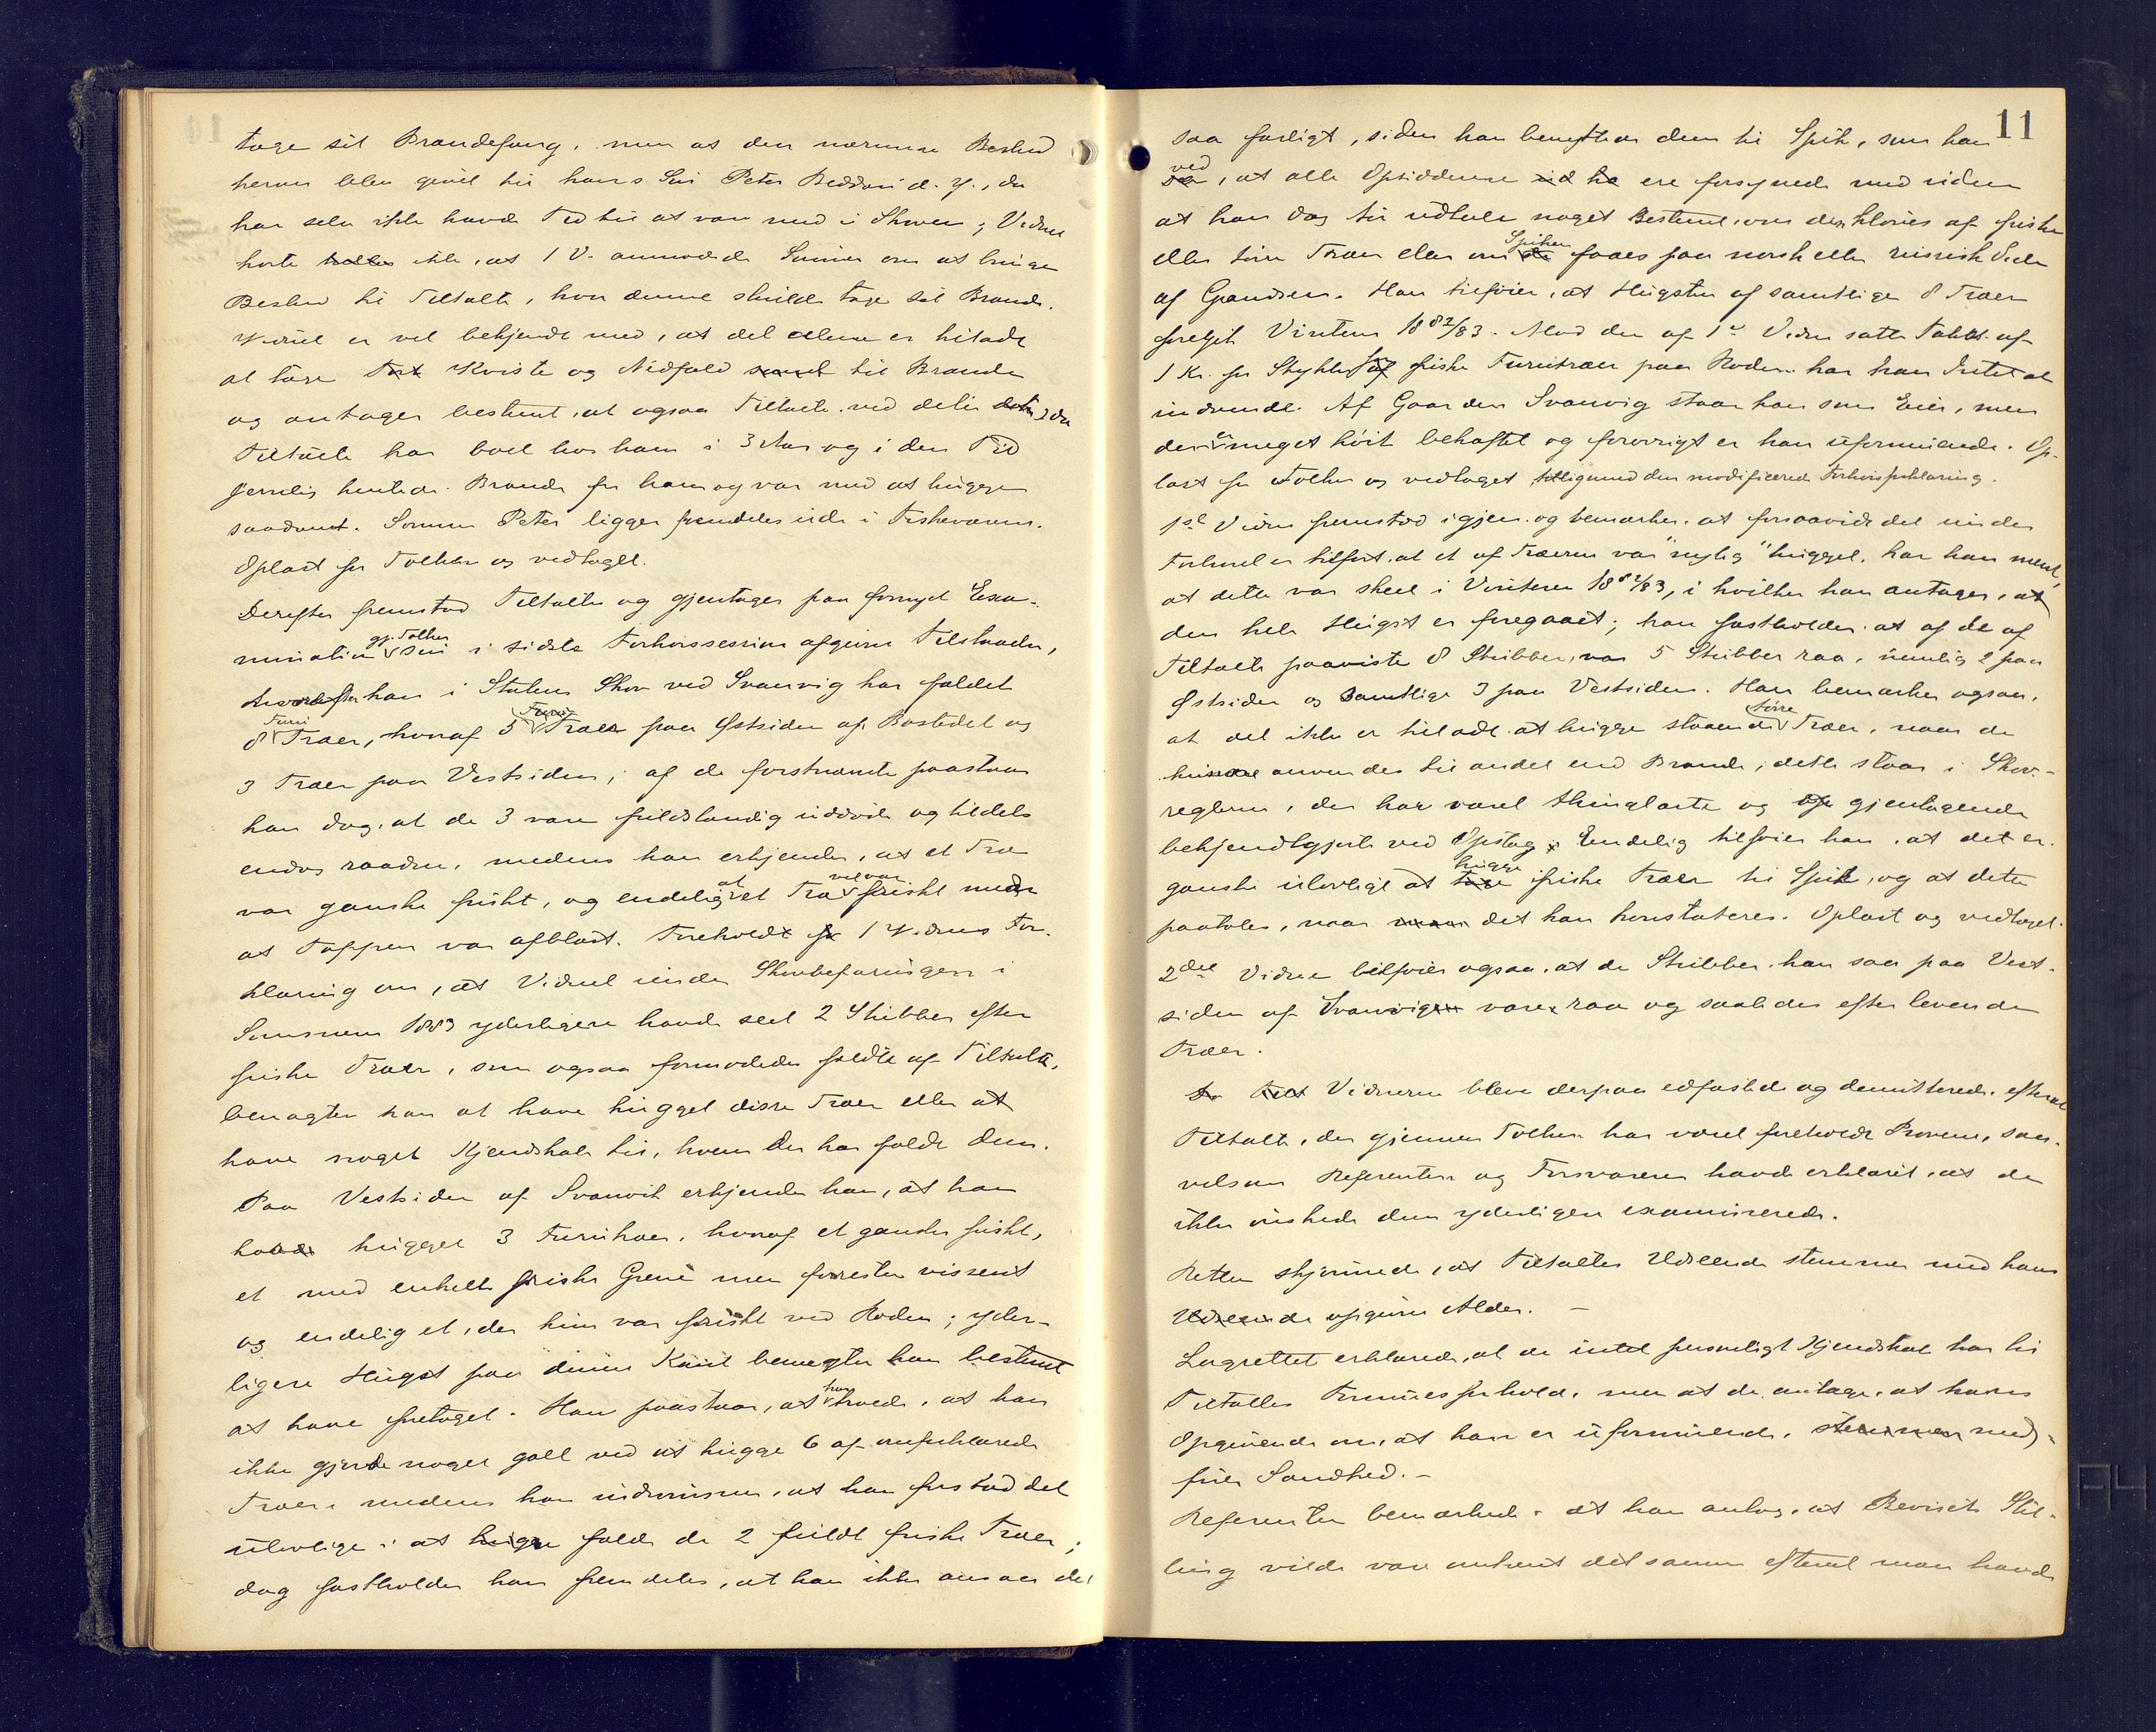 tage sit Brandefang, men at den nærmere Besked
herom blev givet til hans Søn Peter Beddari d. y., da
han selv ikke havde Tid til at være med i Skoven; Vidnet
hørte heller ikke, at 1 V. anmodede Sønnen om at bringe
Besked til Tiltalte, hvor denne skulde tage sit Brande.
Vidnet er vel bekjendt med, at det alene er tilladt
at tage Kviste og Nedfald til Brande
og antager bestemt, at ogsaa Tiltalte ved dette, da
Tiltalte har boet hos ham i 3 Aar og i den Tid
jevnlig hentede Brande for ham og var med at hugge
saadant. Sønnen Peter ligger fremdeles ude i Fiskeværen.
Oplæst for Tolken og vedtaget.
Derefter fremstod Tiltalte og gjentager paa fornyet Exa-
mination gj. Tolken sin i sidste Forhørssession afgivne Tilstaaelse,
hvorefter han i Statens Skov ved Svanvig har fældet
8 Furu Træer, hvoraf 5 Træer paa Østsiden af Bostedet og
3 Træer paa Vestsiden; af de førstnævnte paastaar
han dog, at de 3 vare fuldstændig uddøde og tildels
endog raadne, medens han erkjender, at et Træ
var ganske friskt, og endelig at et Træ vel var friskt men
at Toppen var afblæst. Foreholdt 1 Vidnes For-
klaring om, at Vidnet under Skovbefaringen i
Sommeren 1883 yderligere havde seet 2 Stubber efter
friske Træer, som ogsaa formodedes fældte af Tiltalte,
benægter han at have hugget disse Træer eller at
have noget Kjendskab til, hvem der har fældt dem.
Paa Vestsiden af Svanvik erkjender han, at han
havde hugget 3 Furutræer, hvoraf et ganske friskt,
et med enkelte friske Grene men forresten vissent
og endelig et, der kun var friskt ved Roden; yder-
ligere Hugst paa denne Kant benegter han bestemt
at have foretaget. Han paastaar, at han troede, at han
ikke gjorde noget galt ved at hugge 6 af omforklarede
Træer, medens han indrømmer, at han forstod det
ulovlige i at fælde de 2 fuldt friske Træer;
dog fastholder han fremdeles, at han ikke ansaa det
11
saa farligt, siden han benyttede dem til Spik, som han
ved, at alle Opsidderne ere forsynede med uden
at han dog tør udtale noget Bestemt, om den kløves af friske
eller tørre Træer eller om Spiken faaes paa norsk eller russisk Side
af Grændsen. Han tilføier, at Hugsten af samtlige 8 Træer
foregik Vinteren 1882/83. Mod den af 1e Vidne satte Takst af
1 Kr. pr Stykke for friske Furutræer paa Roden har han Intet at
indvende. Af Gaarden Svanvig staar han som Eier, men
den er meget høit behæftet og forøvrigt er han uformuende. Op-
læst for Tolken og vedtaget tilligemed den modificerede Forhørsforklaring.
1ste Vidne fremstod igjen og bemærker, at forsaavidt det under
Forhøret er tilført, at et af Træerne var "nylig" hugget, har han ment,
at dette var skeet i Vinteren 1882/83, i hvilken han antager, at
den hele Hugst er foregaaet; han fastholder, at af de af
Tiltalte paaviste 8 Stubber, var 5 Stubber raa, nemlig 2 paa
Østsiden og samtlige 3 paa Vestsiden. Han bemærker ogsaa,
at det ikke er tilladt at hugge staaende tørre Træer, naar de
anvendes til andet end Brande; dette staar i Skov-
reglerne, der har været thinglæste og gjentagende
bekjendtgjort ved Opslag. Endelig tilføier han, at det er
ganske ulovligt at hugge friske Træer til Spik, og at dette
paatales, naar det kan konstateres. Oplæst og vedtaget.
2det Vidne tilføier ogsaa, at de Stubber, han saa paa Vest-
siden af Svanvig vare raa og saaledes efter levende
Træer.
Vidnerne bleve derpaa edfæstede og demitterede, efterat
Tiltalte, der gjennem Tolken har været foreholdt Provene, saa-
velsom Referenten og Forsvareren havde erklæret, at de
ikke ønskede dem yderligere examinerede.
Retten skjønnede, at Tiltaltes Udseende stemmer med hans
opgivne Alder. -
Lagrettet erklærede, at de intet personligt Kjendskab har til
Tiltaltes Formuesforhold, men at de antage, at hans
Opgivende om, at han er uformuende, med-
fører Sandhed. -
Referenten bemærkede, at han antog, at Bevisets Stil-
ling vilde være omtrent det samme efterat man havde